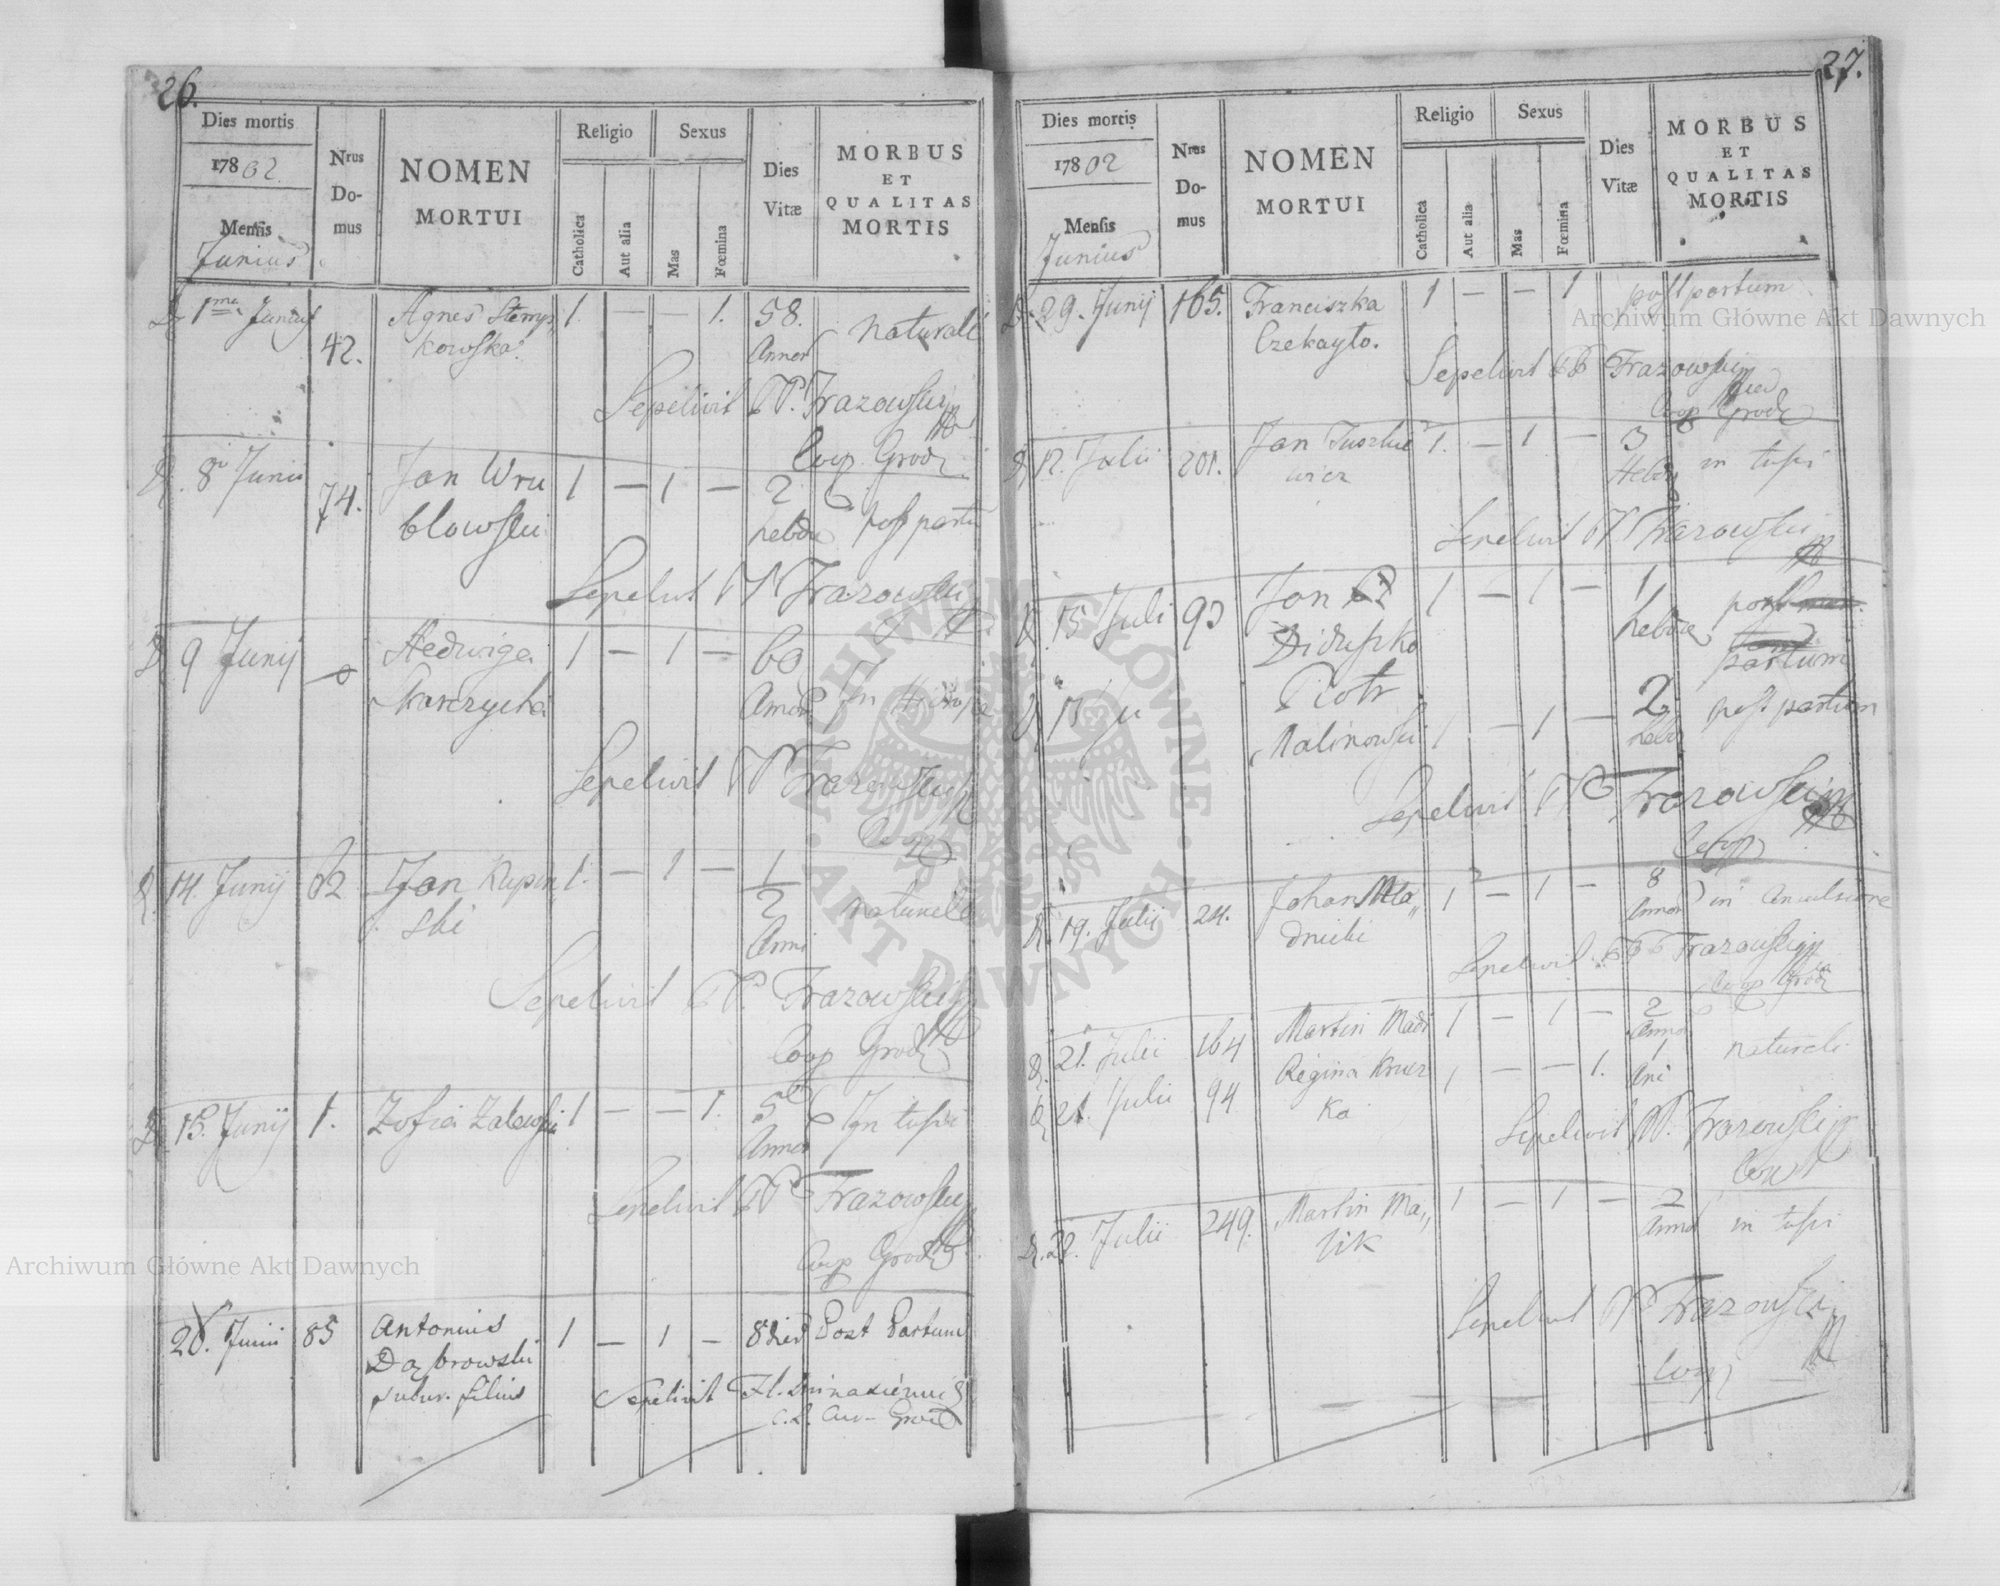 26.
Dies mortis
17802.
Mensis
Junius
Nrus
Do-
mus
NOMEN
MORTUI
Religio
Catholica
Aut alia
Sexus
Mas
Fœmina
Dies
Vitæ
MORBUS
ET
QUALITAS
MORTIS
1ma Junij 42. Agnes Stemp,
kowska. 1. — — 1. 58.
Annor naturali
Sepelivit Frazowski
Coop Grod
8 Junii 74. Jan Wru
blowski 1 — 1 — 2
hebdo post partu
Sepelivit Frazowski
9 Junij Hedwiga 1 — 1 — 60
Annor In
Sepelivit Frazowski
Coop
14. Junij 62 Jan Kupin
ski 1. — 1 — 1
2
Anni naturali
Sepelivit Frazowski
Coop Grod
15. Junij 1. Zofia Zalewski 1 — — 1. 56
Annor In tussi
Sepelivit Frazowski
Coop Grod
26. Junii 85 Antonius
Dąbrowski
subur. filius 1 — 1 — 8 dies Post Partum
Sepelivit
27.
Dies mortis
17802
Mensis
Junius
Nrus
Do-
mus
NOMEN
MORTUI
Religio
Catholica
Aut alia
Sexus
Mas
Fœmina
Dies
Vitæ
MORBUS
ET
QUALITAS
MORTIS
29. Junij 165. Franciszka
Czekayło. 1 — — 1 post partum
Sepelivit Frazowski
Coop Grod
12. Julii 201. Jan Tuszkie
wicz 1. — 1 — 3
Hebd in tussi
Sepelivit Frazowski
15 Juli 93 Jan
1 — 1 — 1
hebdo post
partum
Piotr
Malinowski 1 — 1 — 2
hebd post partum
Sepelivit Frazowski
Coop
19. Julij 24. Johan Mła„
dnicki 1 — 1 — 8
Annor in
Sepelivit Frazowski
Coop Grod
21. Julii 164 Martin Madi 1 — 1 — 2
Anno
21. Julii 94 Regina Krucz
ka 1 — — 1. 1
Ani naturali
Sepelivit Frazowski
22. Julii 249. Martin Ma„
zik 1 — 1 — 2
Anno in tussi
Sepelivit Frazowski
Coop
Archiwum Główne Akt Dawnych
Archiwum Główne Akt Dawnych
ARCHIWUM GŁÓWNE
· AKT DAWNYCH ·